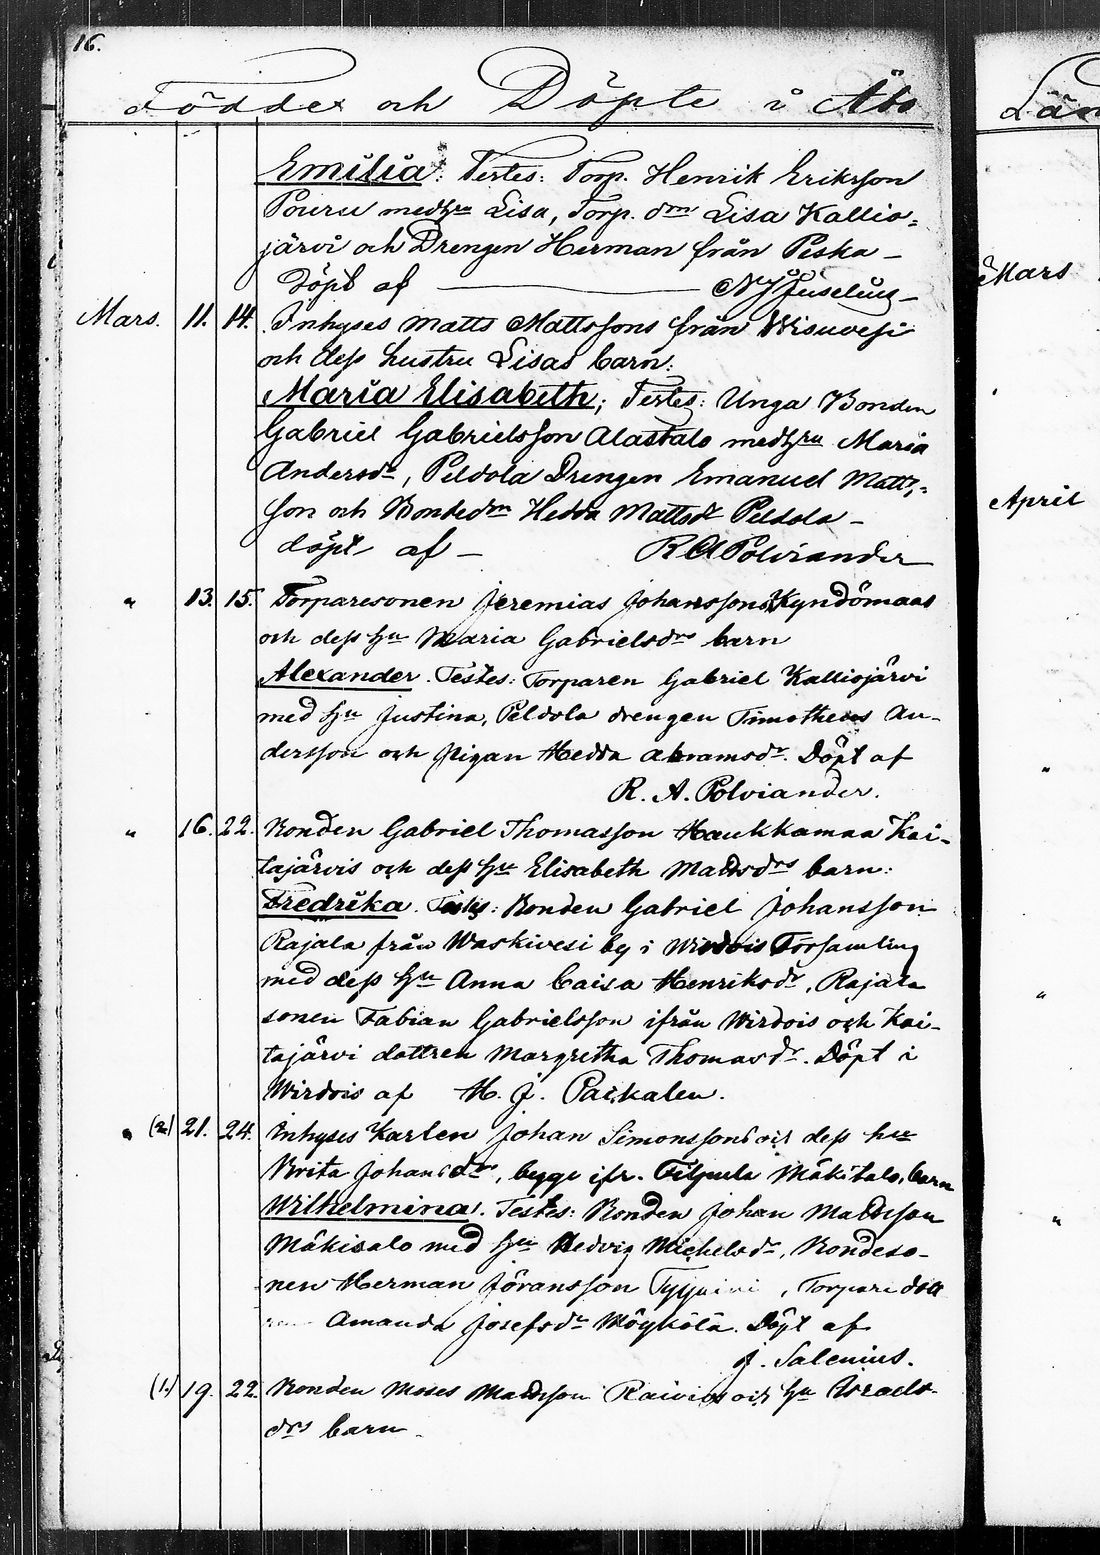 16.
Födde och Döpte i Åbo
Emilia: Testes: Torp. Henrik Eriksson
Pouru med hru Lisa, Torp. drn Lisa Kallio=
järvi och Drengen Herman från Peska –
Döpt af — N J Juselius –
Mars. 11. 14. Inhyses Matts Mattssons från Wisuvesi
och dess hustru Lisas barn:
Maria Elisabeth; Testes: Unga Bonden
Gabriel Gabrielsson Alastalo med hru Maria
Andersdr, Peldola Drengen Emanuel Matts=
son och Bondedrn Hedda Mattsdr Peldola –
döpt af – R A Polviander
" 13. 15. Torparesonen Jeremias Johanssons Kyndömaas
och dess hu Maria Gabrielsdrs barn
Alexander. Testes: Torparen Gabriel Kallisjärvi
med hu Justina, Peldola drengen Timotheus An-
dersson och pigan Hedda Abramsdr. Döpt af
R. A. Polviander.
" 16. 22. Bonden Gabriel Thomasson Haukkamaa Kai-
tajärvis och dess hu Elisabeth Mattsdrs barn:
Fredrika. Testes: Bonden Gabriel Johansson
Rajala från Waskivesi by i Wirdois Församling
med dess hu Anna Caisa Henriksdr, Rajala
sonen Fabian Gabrielsson ifrån Wirdois och Kai-
tajärvi dottren Margretha Thomasdr. Döpt i
Wirdois af H. J. Paikalen.
" (2) 21. 24. Inhyses Karlen Johan Simonssons och dess hu
Brita Johansdrs, bygge ifr. Filpula Mäkitalo, barn
Wilhelmina. Testes: Bonden Johan Mattsson
Mäkisalo med hu Hedvig Michelsdr, Bondeso-
nen Herman Jöransson , Torpare dott
Amanda Josefsdr Möykölä. Döpt af
J. Salenius.
(1.) 19. 22. Bonden Moses Mattsson och hu Israels-
drs barn.
Län
Mars
April
"
"
"